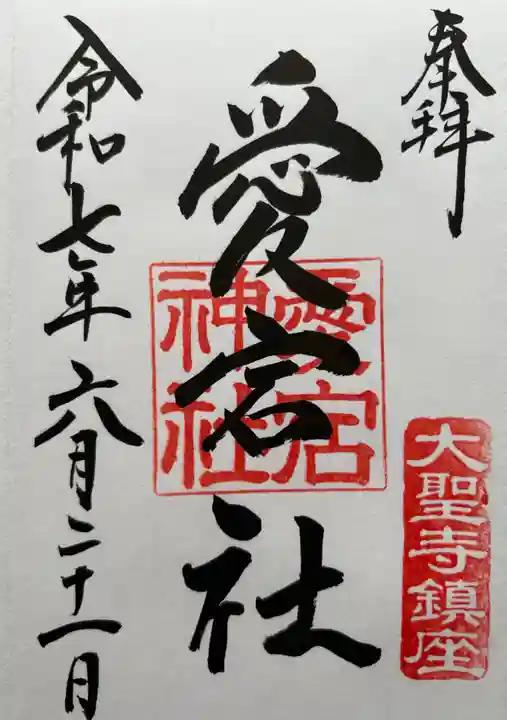 奉拝
大聖寺鎮座
愛宕社
愛宕
神社
令和七年六月二十一日